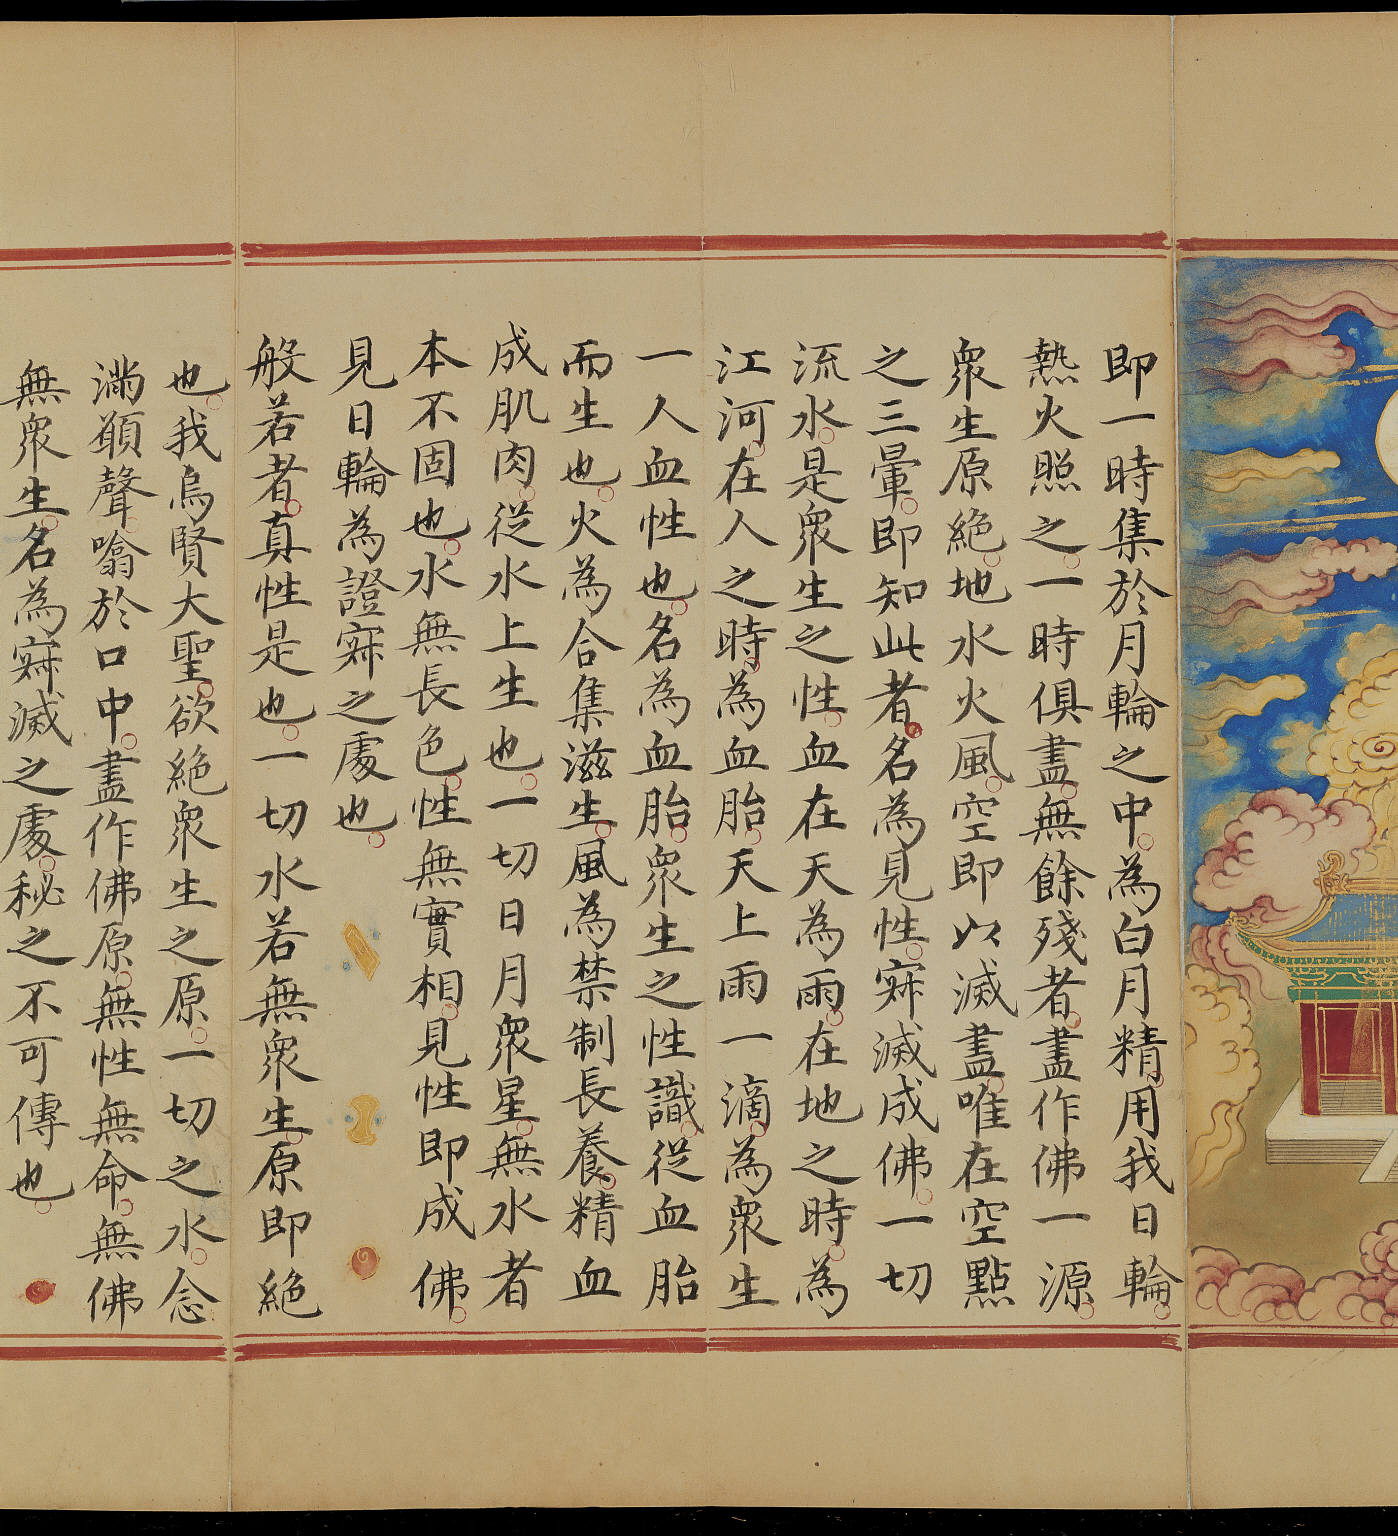 即一時集於月輪之中為白月精用我日輪
熱火照之一時俱盡無餘殘者盡作佛一源
眾生原絕地水火風空即以滅盡唯在空點
之三暈即知此者名為見性寂滅成佛一切
流水是眾生之性血在天為雨在地之時為
江河在人之時為血胎天上雨一滴為眾生
一人血性也名為血胎眾生之性識從血胎
而生也火為合集滋生風為禁制長養精血
成肌肉從水上生也一切日月眾星無水者
本不固也水無長色性無實相見性即成佛
見日輪為證寂之處也
般若者真性是也一切水若無眾生原即絕
也我烏賢大聖欲絕眾生之原一切之水念
滿願聲噏於口中盡作佛原無性無命無佛
無眾生名為寂滅之處秘之不可傳也